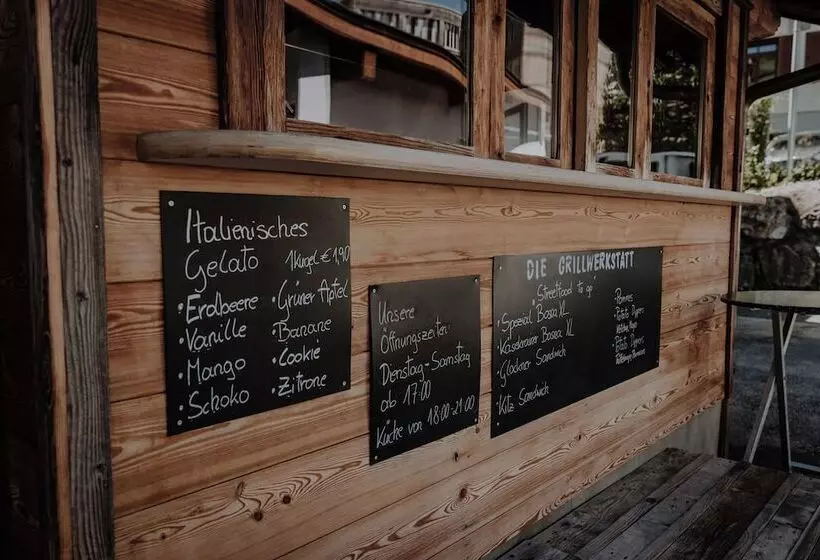 Italienisches
Gelato 1Kugel € 1,90
• Erdbeere
• Vanille
• Mango
• Schoko
• Grüner Apfel
• Banane
• Cookie
• Zitrone
Unsere
Öffnungszeiten:
Dienstag - Samstag
ab 17:00
Küche von 18:00-21:00
DIE GRILLWERKSTATT
Streetfood to go
• Spezial Bosna XL
• Käsekrainer Bosna XL
• Glockner Sandwich
• Kitz Sandwich
• Pommes
• Potato Dipper
• Potato Dipper